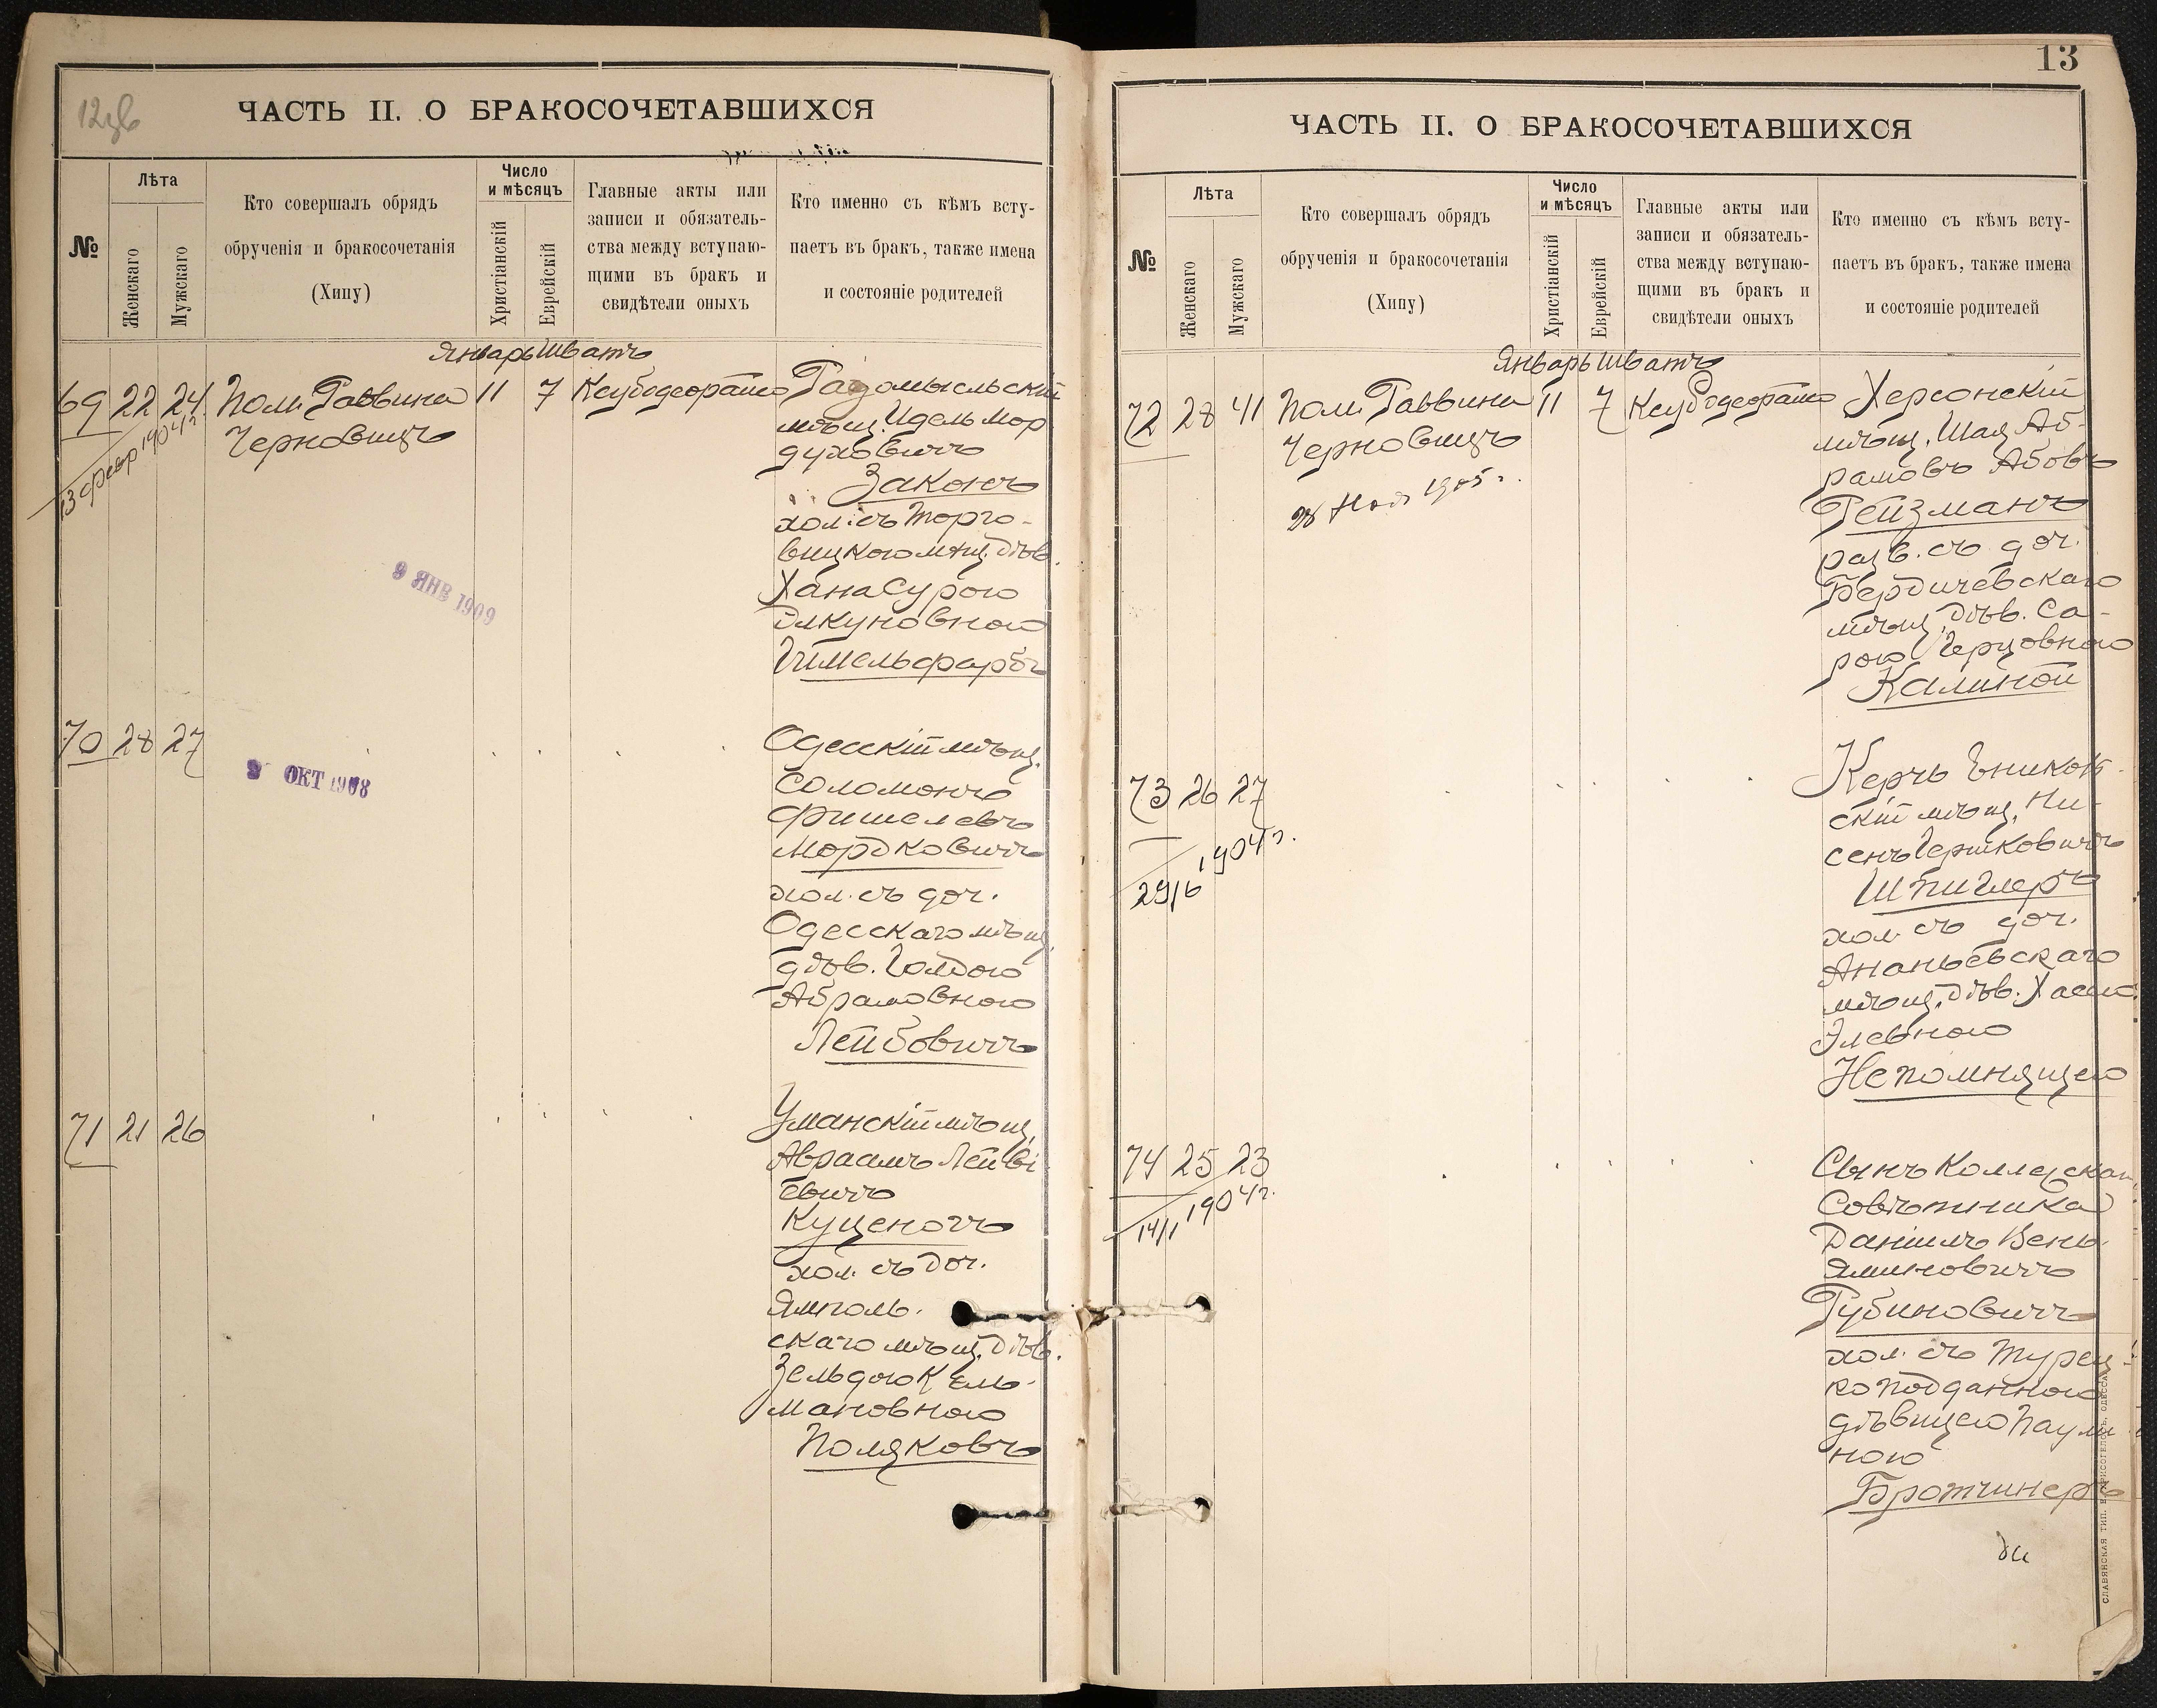 12 об
ЧАСТЬ II. О БРАКОСОЧЕТАВШИХСЯ
№
Лѣта
Женскаго
Мужскаго
Кто совершалъ обрядъ
обрученія и бракосочетанія
(Хипу)
Число
и мѣсяцъ
Христіанскій
Еврейскій
Главные акты или
записи и обязатель-
ства между вступаю-
щими въ бракъ и
свидѣтели оныхъ
Кто именно съ кѣмъ всту-
паетъ въ бракъ, также имена
и состояніе родителей
Январь Шватъ
69 22 24 Пом. Раввина 11 7
Черновицъ
13 февр 1904 г
Радомысльскій
мѣщ. Идель Мор
духовичъ
Законъ
хол. съ Торго-
вицкою мѣщ. дѣв.
Хана Сурою
Гимельфарбъ
9 ЯНВ 1909
70 28 27
9 ОКТ 1908
Одесскій мѣщ.
Соломонъ
Фишелевъ
Мордковичъ
хол. съ доч.
Одесскаго мѣщ.
дѣв. Голдою
Абрамовною
Лейбовичъ
71 21 26
Уманскій мѣщ.
Авраамъ Лейві
евичъ
Куценогъ
хол. съ доч.
Ямполь-
скаго мѣщ. дѣв.
Зельдою Кель-
мановною
Поляковъ
13
ЧАСТЬ II. О БРАКОСОЧЕТАВШИХСЯ
№
Лѣта
Женскаго
Мужскаго
Кто совершалъ обрядъ
обрученія и бракосочетанія
(Хипу)
Число
и мѣсяцъ
Христіанскій
Еврейскій
Главные акты или
записи и обязатель-
ства между вступаю-
щими въ бракъ и
свидѣтели оныхъ
Кто именно съ кѣмъ всту-
паетъ въ бракъ, также имена
и состояніе родителей
Январь Шватъ
72 28 41 Пом. Раввина 11 7
Черновицъ
28 Ноя 1905 г.
Херсонскій
мѣщ. Шая Аб-
рамовъ Абовъ
Рейзманъ
разв. съ доч.
Бердичевскаго
мѣщ. дѣв. Са-
рою Герцовною
Калиной
73 26 27
29/6 1904 г.
Керчь Еникол
скій мѣщ. Ни-
сенъ Гершковичъ
Шпиглеръ
хол. съ доч.
Ананьевскаго
мѣщ. дѣв. Хаею
Элевною
Непомнящею
74 25 23
14/1 1904 г.
Сынъ Коллежскаго
Совѣтника
Даніилъ Вень-
яминовичъ
Рубиновичъ
хол. съ Турец-
ко подданною
дѣвицею Паули
ною
СЛАВЯНСКАЯ ТИП. Е. ХРИСОГЕЛОСЪ, ОДЕССА